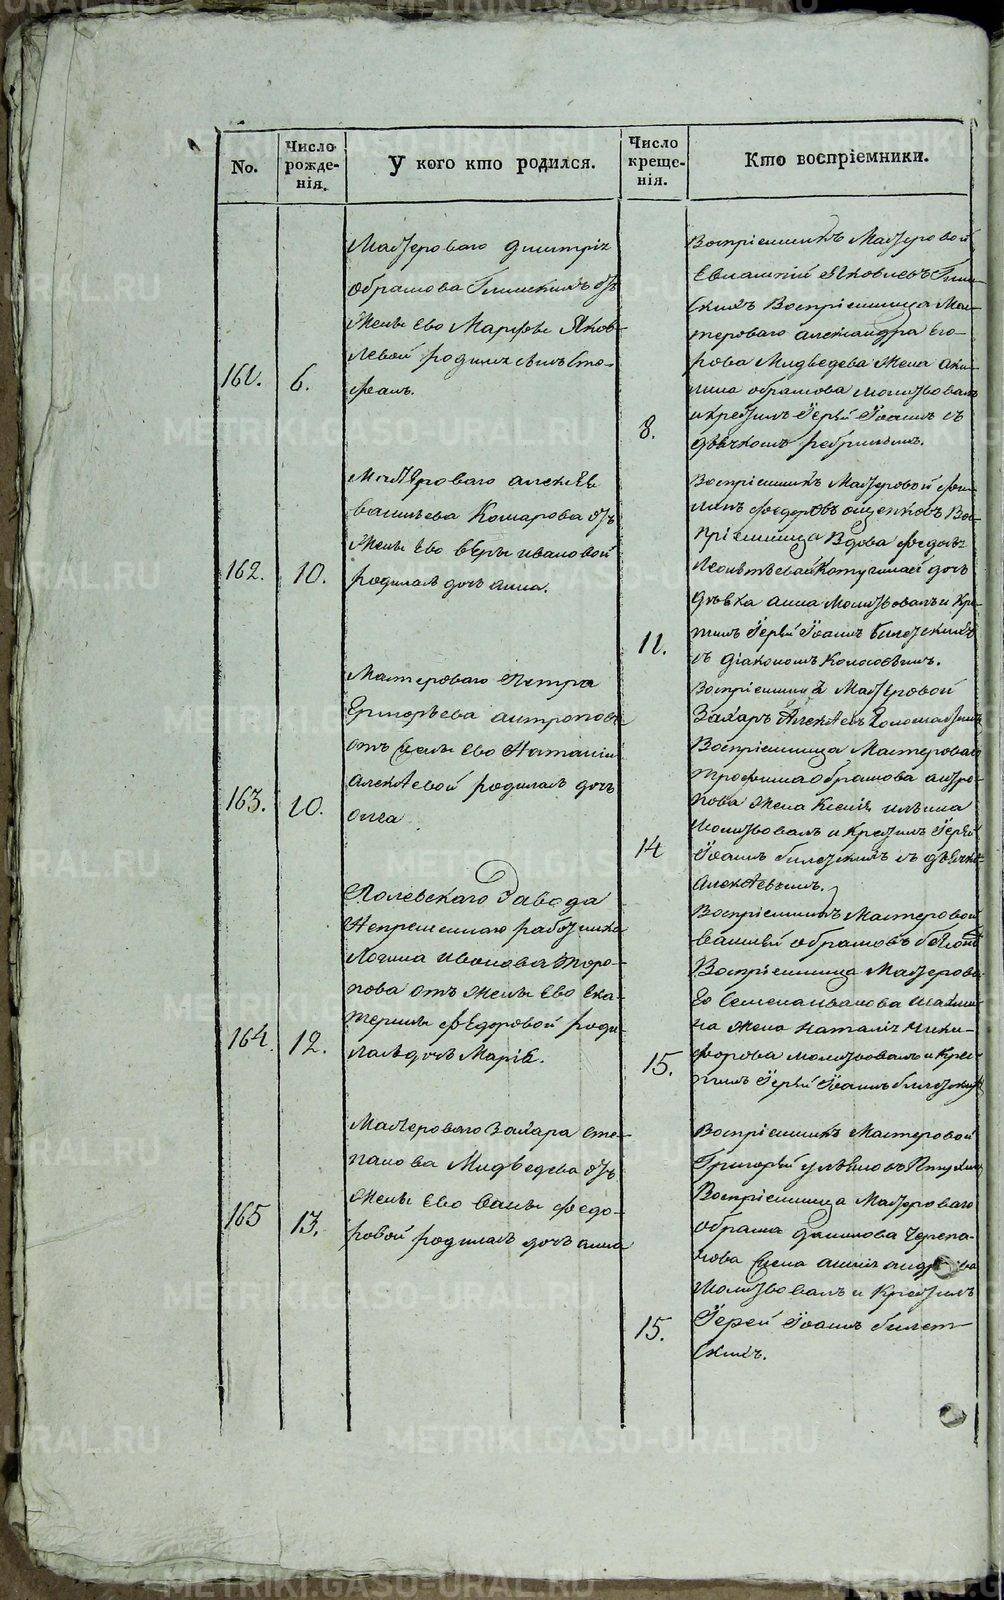 No.
Число рожде-нія.
У кого кто родился.
Число креще-нія.
Кто воспріемники.
161.
6.
Мастероваго Димитрія
Обрамова Глинскихъ отъ
Жены Ево Марфы Яков-
левой родился сынъ Сте-
фанъ.
8.
Воспріемникъ Мастеровой
Евлампій Яковлевъ Глин-
скихъ Воспріемница Мас-
тероваго александра Его-
рова Мидведева Жена аки-
лина обрамова молитвовалъ
и крестилъ Іерей Іоаннъ съ
дьячкомъ
162.
10.
Мастероваго алексѣя
васильева Комарова отъ
Жены Ево вѣры ивановой
родилась дочь анна.
11.
Воспріемникъ Мастеровой фи-
липъ федоровъ Вос-
пріемница Вдова федосьи
дочь
дѣвка анна Молитвовалъ и Кре-
тилъ Іерей Іоаннъ билетскихъ
съ діакономъ Колосовымъ.
163.
10.
Мастероваго Петра
Григорьева антропова
отъ Жены Ево Наталіи
алексѣевой родилась дочь
олга
14
Воспріемникъ Мастеровой
Захаръ Алексѣевъ
Воспріемница Мастероваго
трофима обрамова антро-
пова Жена Ксенія ильина
Молитвовалъ и Крестилъ Іерей
Іоаннъ билетскихъ съ дьячко
Алексѣевымъ.
164.
12.
Полевскаго Завода
Непременнаго работника
Логина иванова Торо-
пова отъ Жены Ево Ека-
терины федоровой роди-
лась дочь Марія.
15.
Воспріемникъ Мастеровой
василей обрамовъ
Воспріемница Мастерова-
го Семена иванова
на Жена Наталія Ники-
форова молитвовалъ и Крес-
тилъ Іерей Іоаннъ билетскихъ
165
13.
Мастероваго Захара Сте-
панова Мидведева отъ
Жены Ево федо-
ровой родилась дочь анна
15.
Воспріемникъ Мастеровой
Григорей ульяновъ
Воспріемница Мастероваго
обрама данилова Черепа-
нова Жена
Молитвовалъ и Крестилъ
Іерей Іоаннъ билет-
скихъ.
METRIKI.GASO-URAL.RU